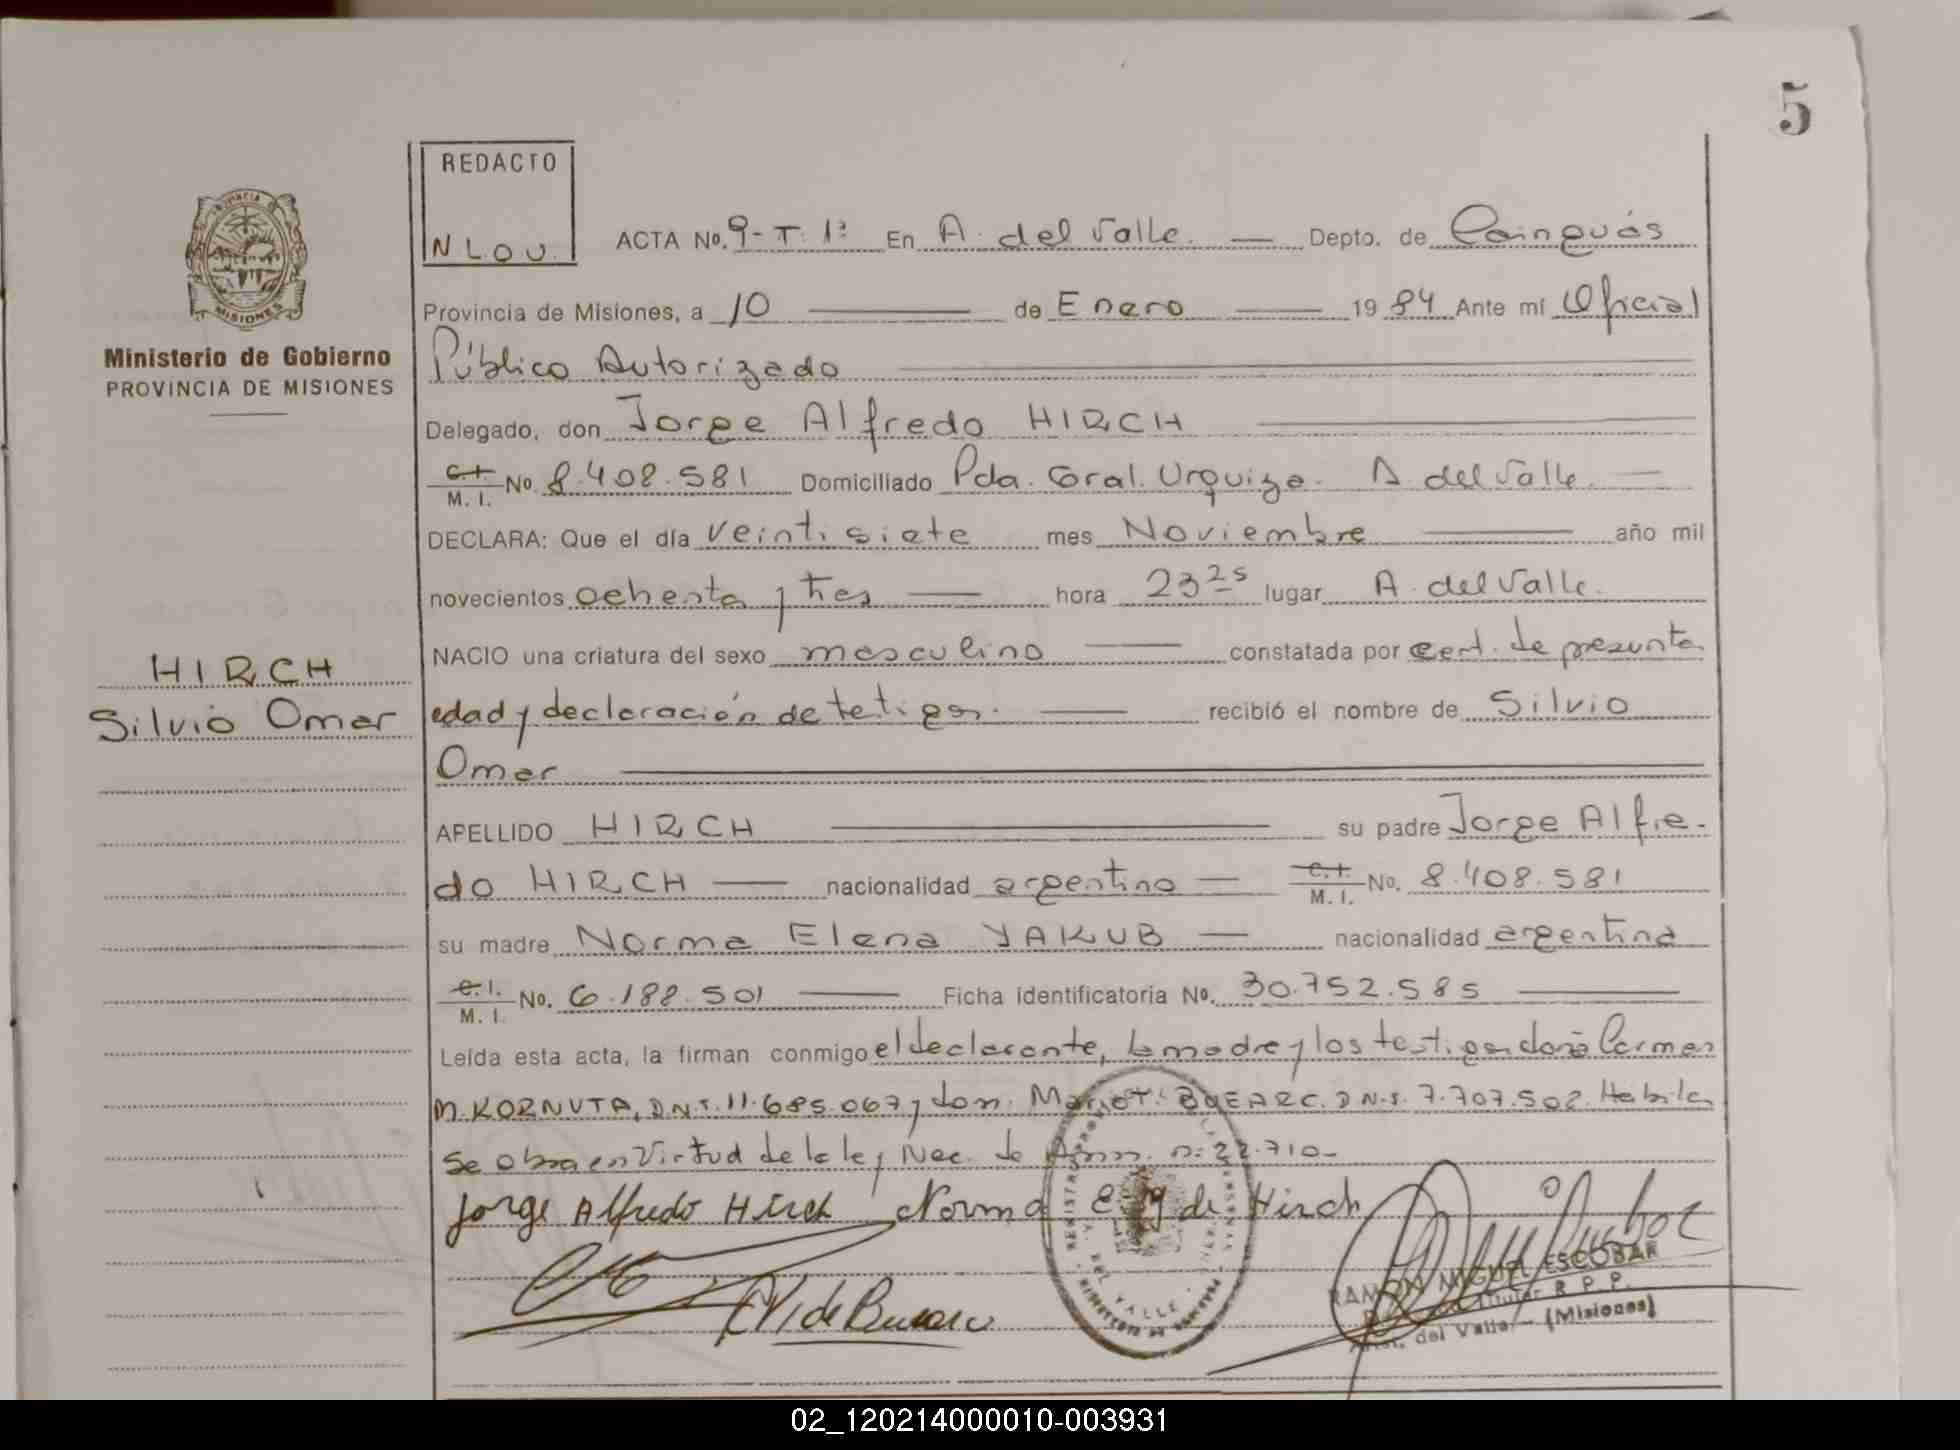 5
REDACTO
N L O U.
ACTA No. 9-T. 1º En A. del Valle. — Depto. de Cainguás
Provincia de Misiones, a 10 — de Enero — 1984 Ante mí Oficial
Público Autorizado
Delegado, don Jorge Alfredo HIRCH
C.I. / M. I. No. 8.408.581 Domiciliado Pda. Gral. Urquiza. A. del Valle —
DECLARA: Que el día veintisiete mes Noviembre — año mil
novecientos ochenta y tres — hora 23 25 lugar A. del Valle.
NACIO una criatura del sexo masculino — constatada por cert. de presunta
edad y declaración de tetigos. — recibió el nombre de Silvio
Omar
APELLIDO HIRCH — su padre Jorge Alfre-
do HIRCH — nacionalidad argentino — C.I. / M. I. No. 8.408.581
su madre Norma Elena YAKUB — nacionalidad argentina
C.I. / M. I. No. 6.188.501 — Ficha identificatoria No. 30.752.585 —
Leída esta acta, la firman conmigo el declarante, la madre y los testigos doña Carmen
M. KORNUTA, D.N.I. 11.685.067 y don. Mario
D.N.I. 7.707.502.
Se obra en Virtud de la ley Nac. de n: 22.710-
Jorge Alfredo Hirch Norma E Y de Hirch
RAMON MIGUEL ESCOBAR
Titular R. P. P.
Arist. del Valle - (Misiones)
PROVINCIA DE
MISIONES
Ministerio de Gobierno
PROVINCIA DE MISIONES
HIRCH
Silvio Omar
02_120214000010-003931